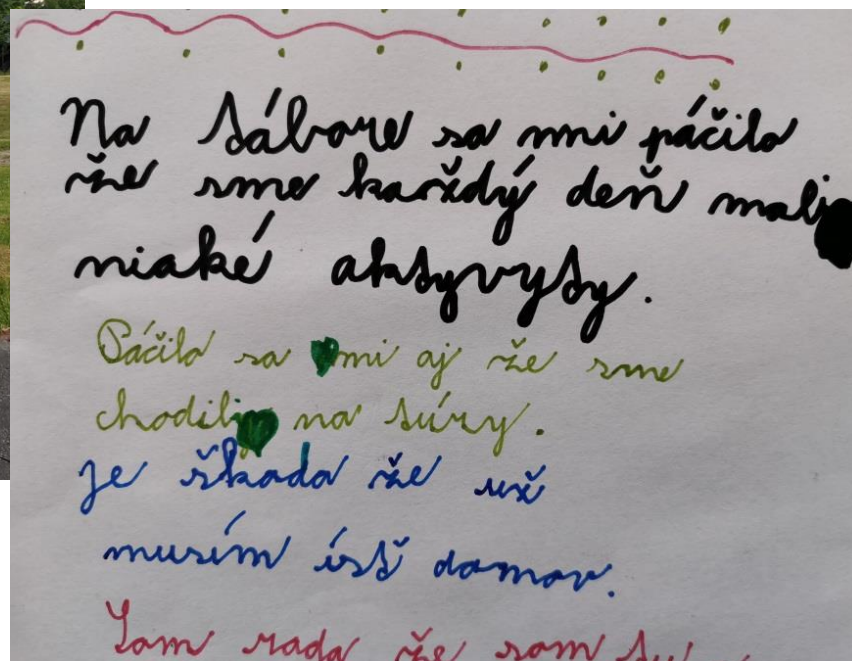 Na tábore sa mi páčilo
že sme každý deň mali
niaké aktyvyty.
Páčilo sa mi aj že sme
chodili na túry.
je škoda že už
musím ísť domov.
Som rada že som tu